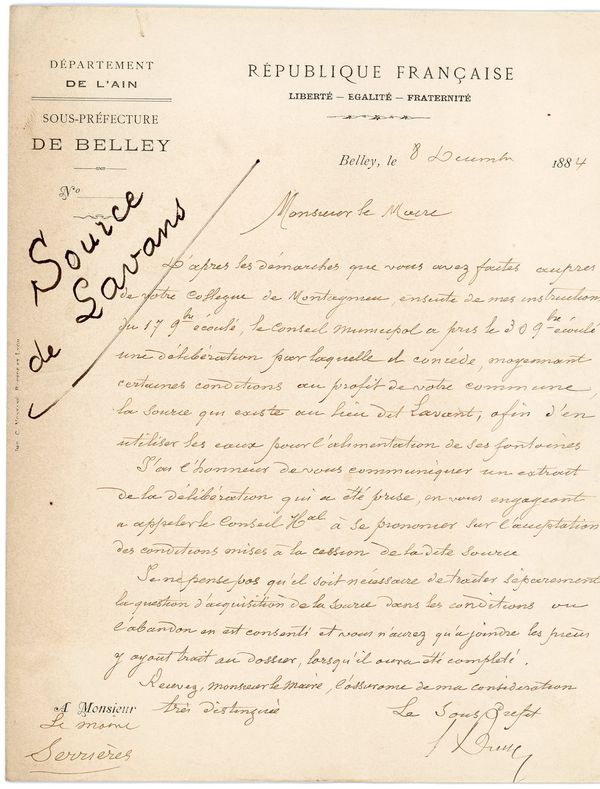 DÉPARTEMENT
DE L'AIN
SOUS-PRÉFECTURE
DE BELLEY
No
RÉPUBLIQUE FRANÇAISE
LIBERTÉ — EGALITÉ — FRATERNITÉ
Belley, le 8 Decembre 1884
Source
de Lavans
Monsieur le Maire
D'apres les démarches que vous avez faites aupres
de votre collègue de Montagnieu, ensuite de mes instructions
du 17 9bre écoulé, le Conseil Municipal a pris le 30 9bre écoulé
une délibération par laquelle il concède, moyennant
certaines conditions au profit de votre commune,
la source qui existe au lieu dit Lavant, afin d'en
utiliser les eaux pour l'alimentation de ses fontaines
J'ai l'honneur de vous communiquer un extrait
de la délibération qui a été prise, en vous engageant
a appeler le Conseil Mal à se prononcer sur l'acceptation
des conditions mises à la cession de la dite source
Je ne pense pas qu'il soit nécessaire de traiter séparement
la question d'acquisition de la source dans les conditions ou
l'abandon en est consenti et vous n'aurez qu'a joindre les pieces
y ayant trait au dossier, lorsqu'il aura été complété.
Recevez, monsieur le Maire, l'assurance de ma considération
très distinguée
Le Sous Prefet
A Monsieur
Le maire
Serrières